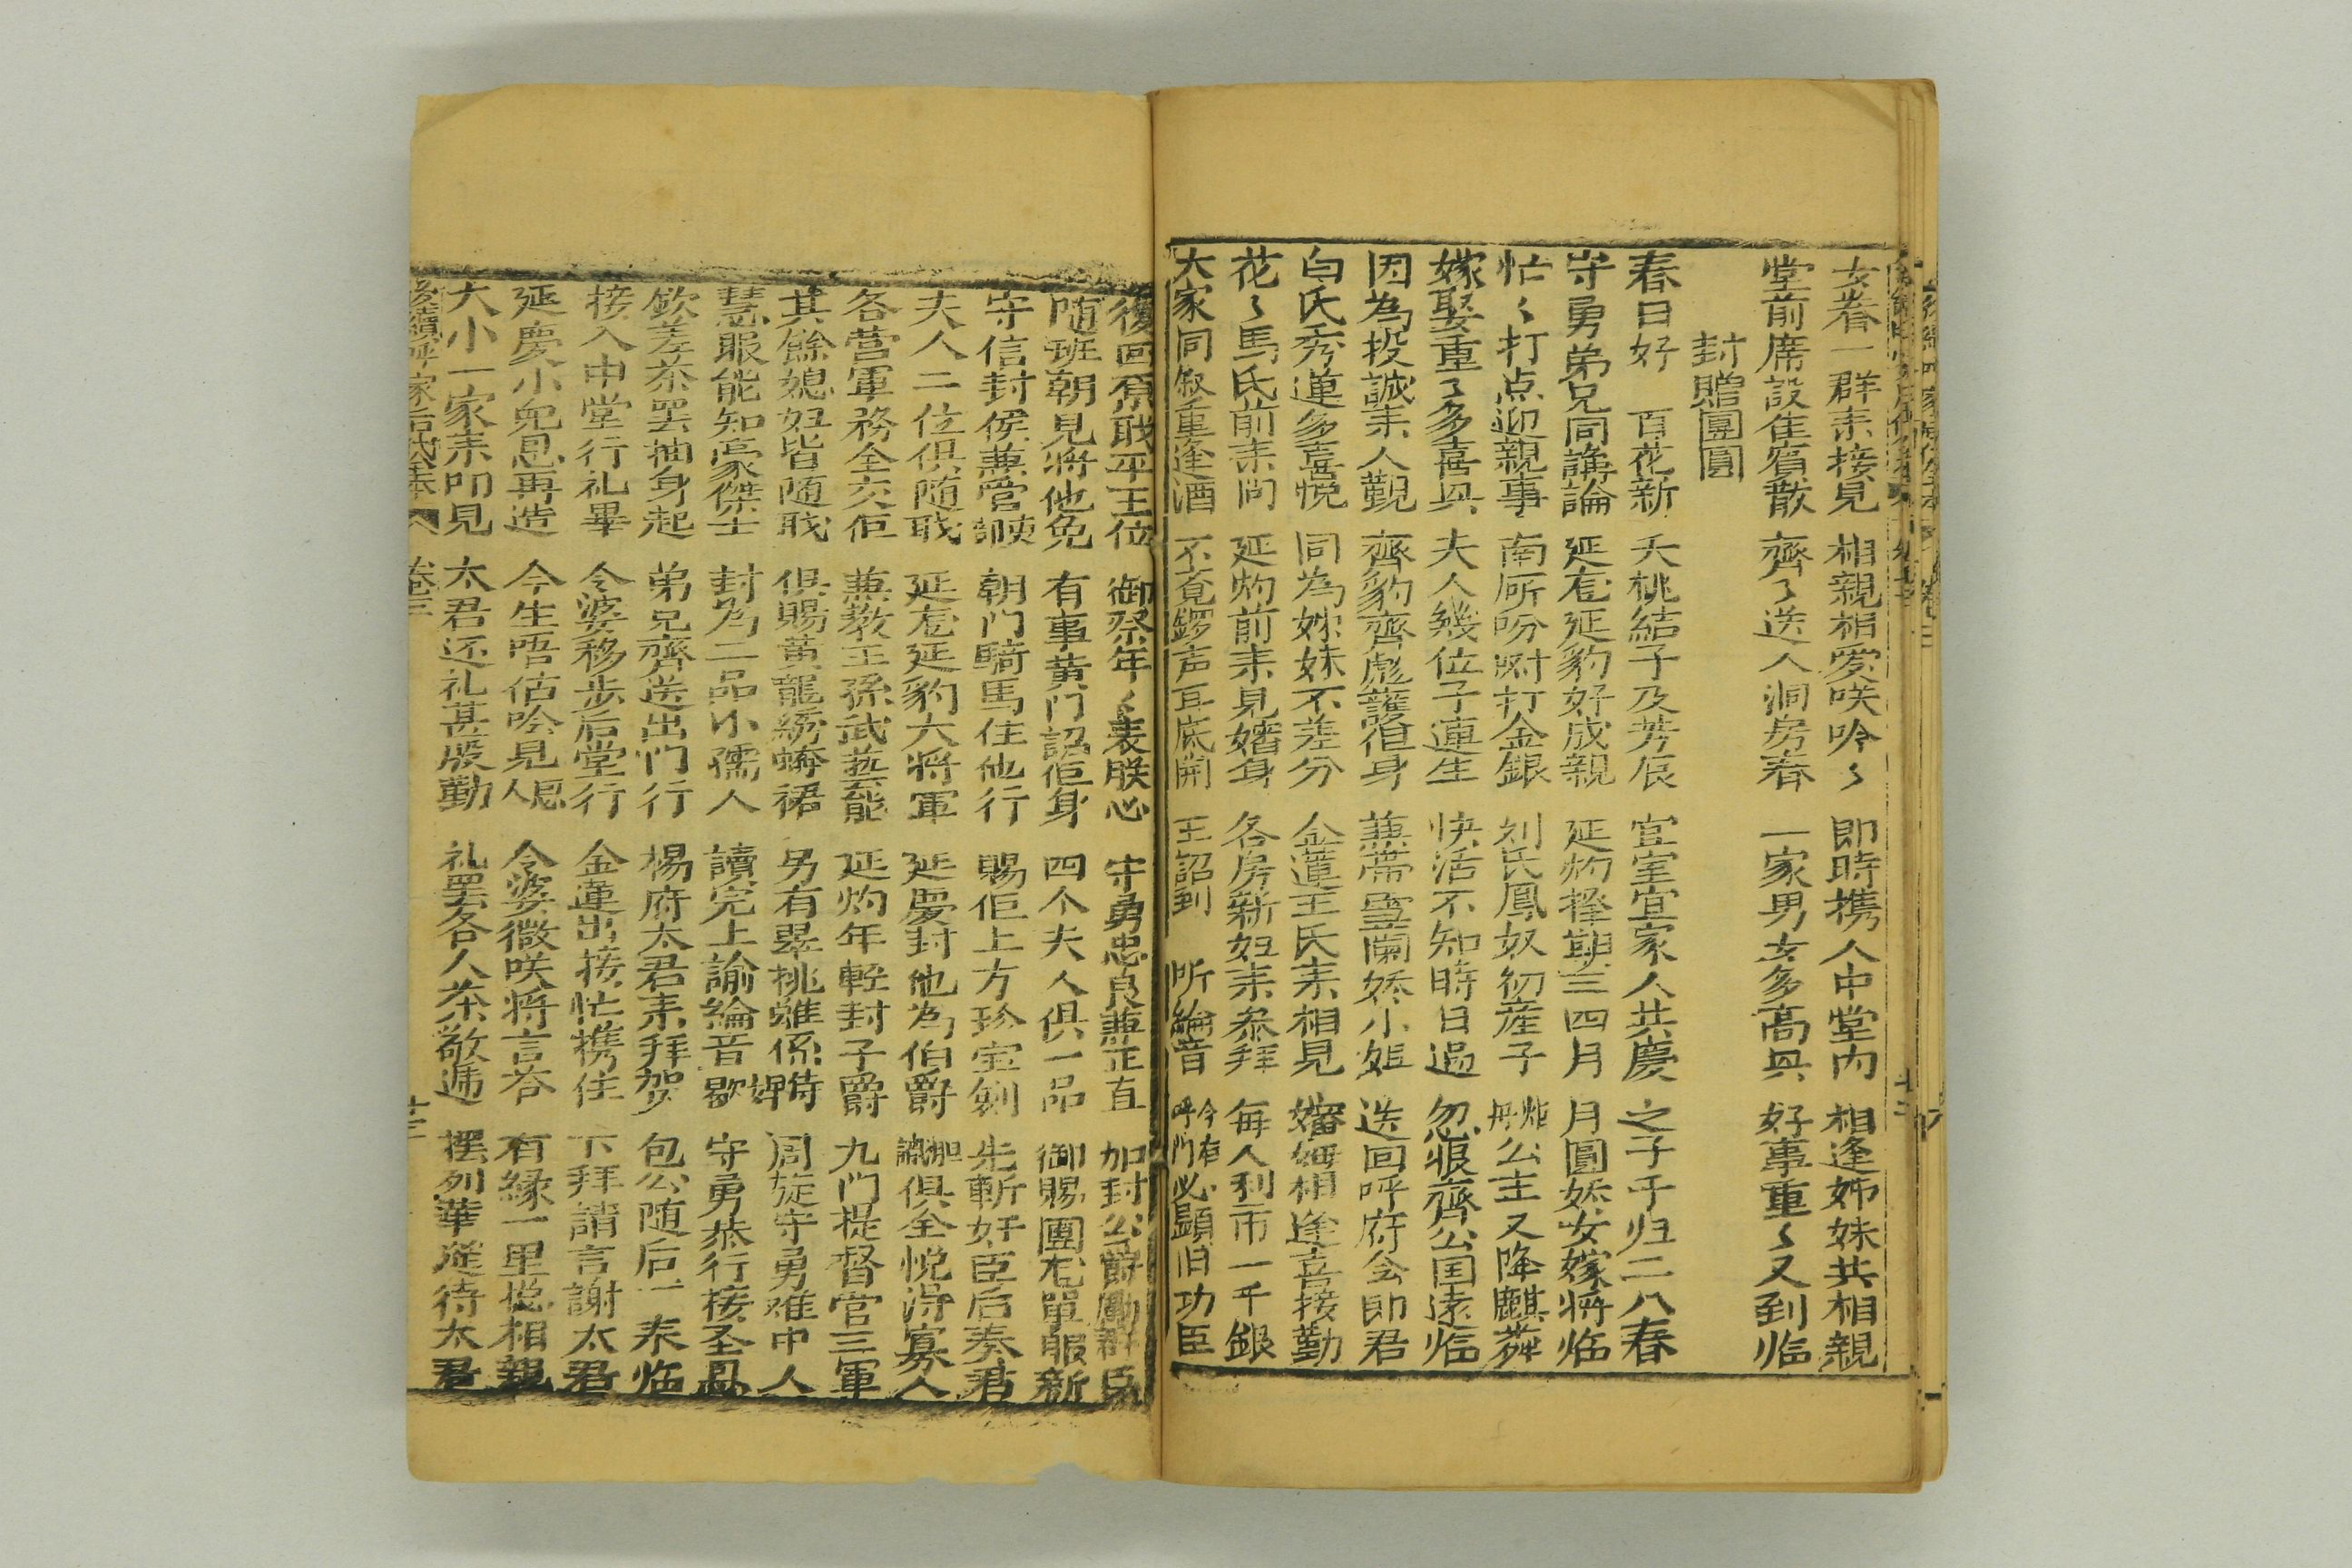 女眷一群来接見 相親相愛咲吟〻 即時携入中堂内 相逢姊妹共相親
堂前席設隹賓散 齊〻送入洞房春 一家男女多高興 好事重〻又到临
封贈團圓
春日好 百花新 夭桃結子及芳辰 宜室宜家人共慶 之子于归二八春
守勇弟兄同講論 延龙延豹好成親 延灼擇期三四月 月圓嫁女嫁將临
忙〻打点迎親事 南厢吩咐打金銀 刘氏鳳奴初産子 公主又降麒麟
嫁娶重〻多喜興 夫人幾位子連生 快活不知時日過 忽报齊公国遠临
因為投誠来人覲 齊豹齊彪護從身 兼帶雪蘭嬌小姐 送回呼府会郎君
白氏秀蓮多喜悦 同為姊妹不差分 金蓮王氏来相見 嬸姆相逢喜接勤
花〻馬氏前来问 延灼前来見嬸身 各房新妇来参拜 每人利市一千銀
大家同叙重逢酒 不覚鑼声耳底開 王詔到 听綸音 今有呼門必顕旧功臣
復回原戝平王位 御祭年〻表朕心 守勇忠良兼正直 加封公爵勵群臣
随班朝見将他免 有事黄门詔佢身 四个夫人俱一品 御賜團龙單服新
守信封侯兼管 朝门騎馬住他行 賜佢上方珍宝剣 先斬奸臣后奏君
夫人二位俱随戝 延龙延豹大将軍 延慶封他為伯爵 胆識俱全悦得寡人
各营軍務全交佢 兼教王孫武芸能 延灼年輕封子爵 九门提督管三軍
其餘媳妇皆随戝 俱賜黄龍綉蟒裙 男有翠桃雖係婢 周旋守勇难中人
慧眼能知豪傑士 封為二品小孺人 讀完上諭綸音歇 守勇恭行接圣恩
欽差茶罢抽身起 弟兄齊送出门行 楊府太君来拜贺 包公随后一来临
接入中堂行礼畢 令婆移步后堂行 金蓮出接忙携住 下拜請言謝太君
延慶小兒恩再造 今生唔估吟見人恩 令婆微咲将言答 有緣一里捴相親
大小一家来叩見 太君还礼甚殷勤 礼罢各人茶敬逓 摆列華筵待太君
後續呼家后代全本 卷三